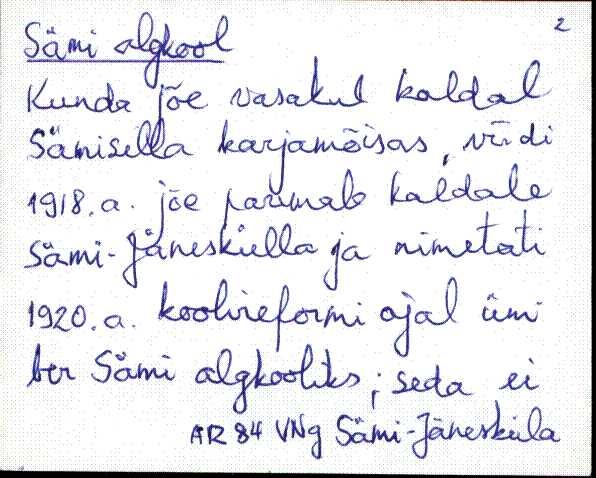 2
Sämi algkool
Kunda jõe vasakul kaldal
Sämisilla karjamõisas, viidi
1918. a. jõe paremale kaldale
Sämi-Jäneskülla ja nimetati
1920. a. koolireformi ajal üm
ber Sämi algkooliks; seda ei
AR 84 VNg Sämi-Jänesküla